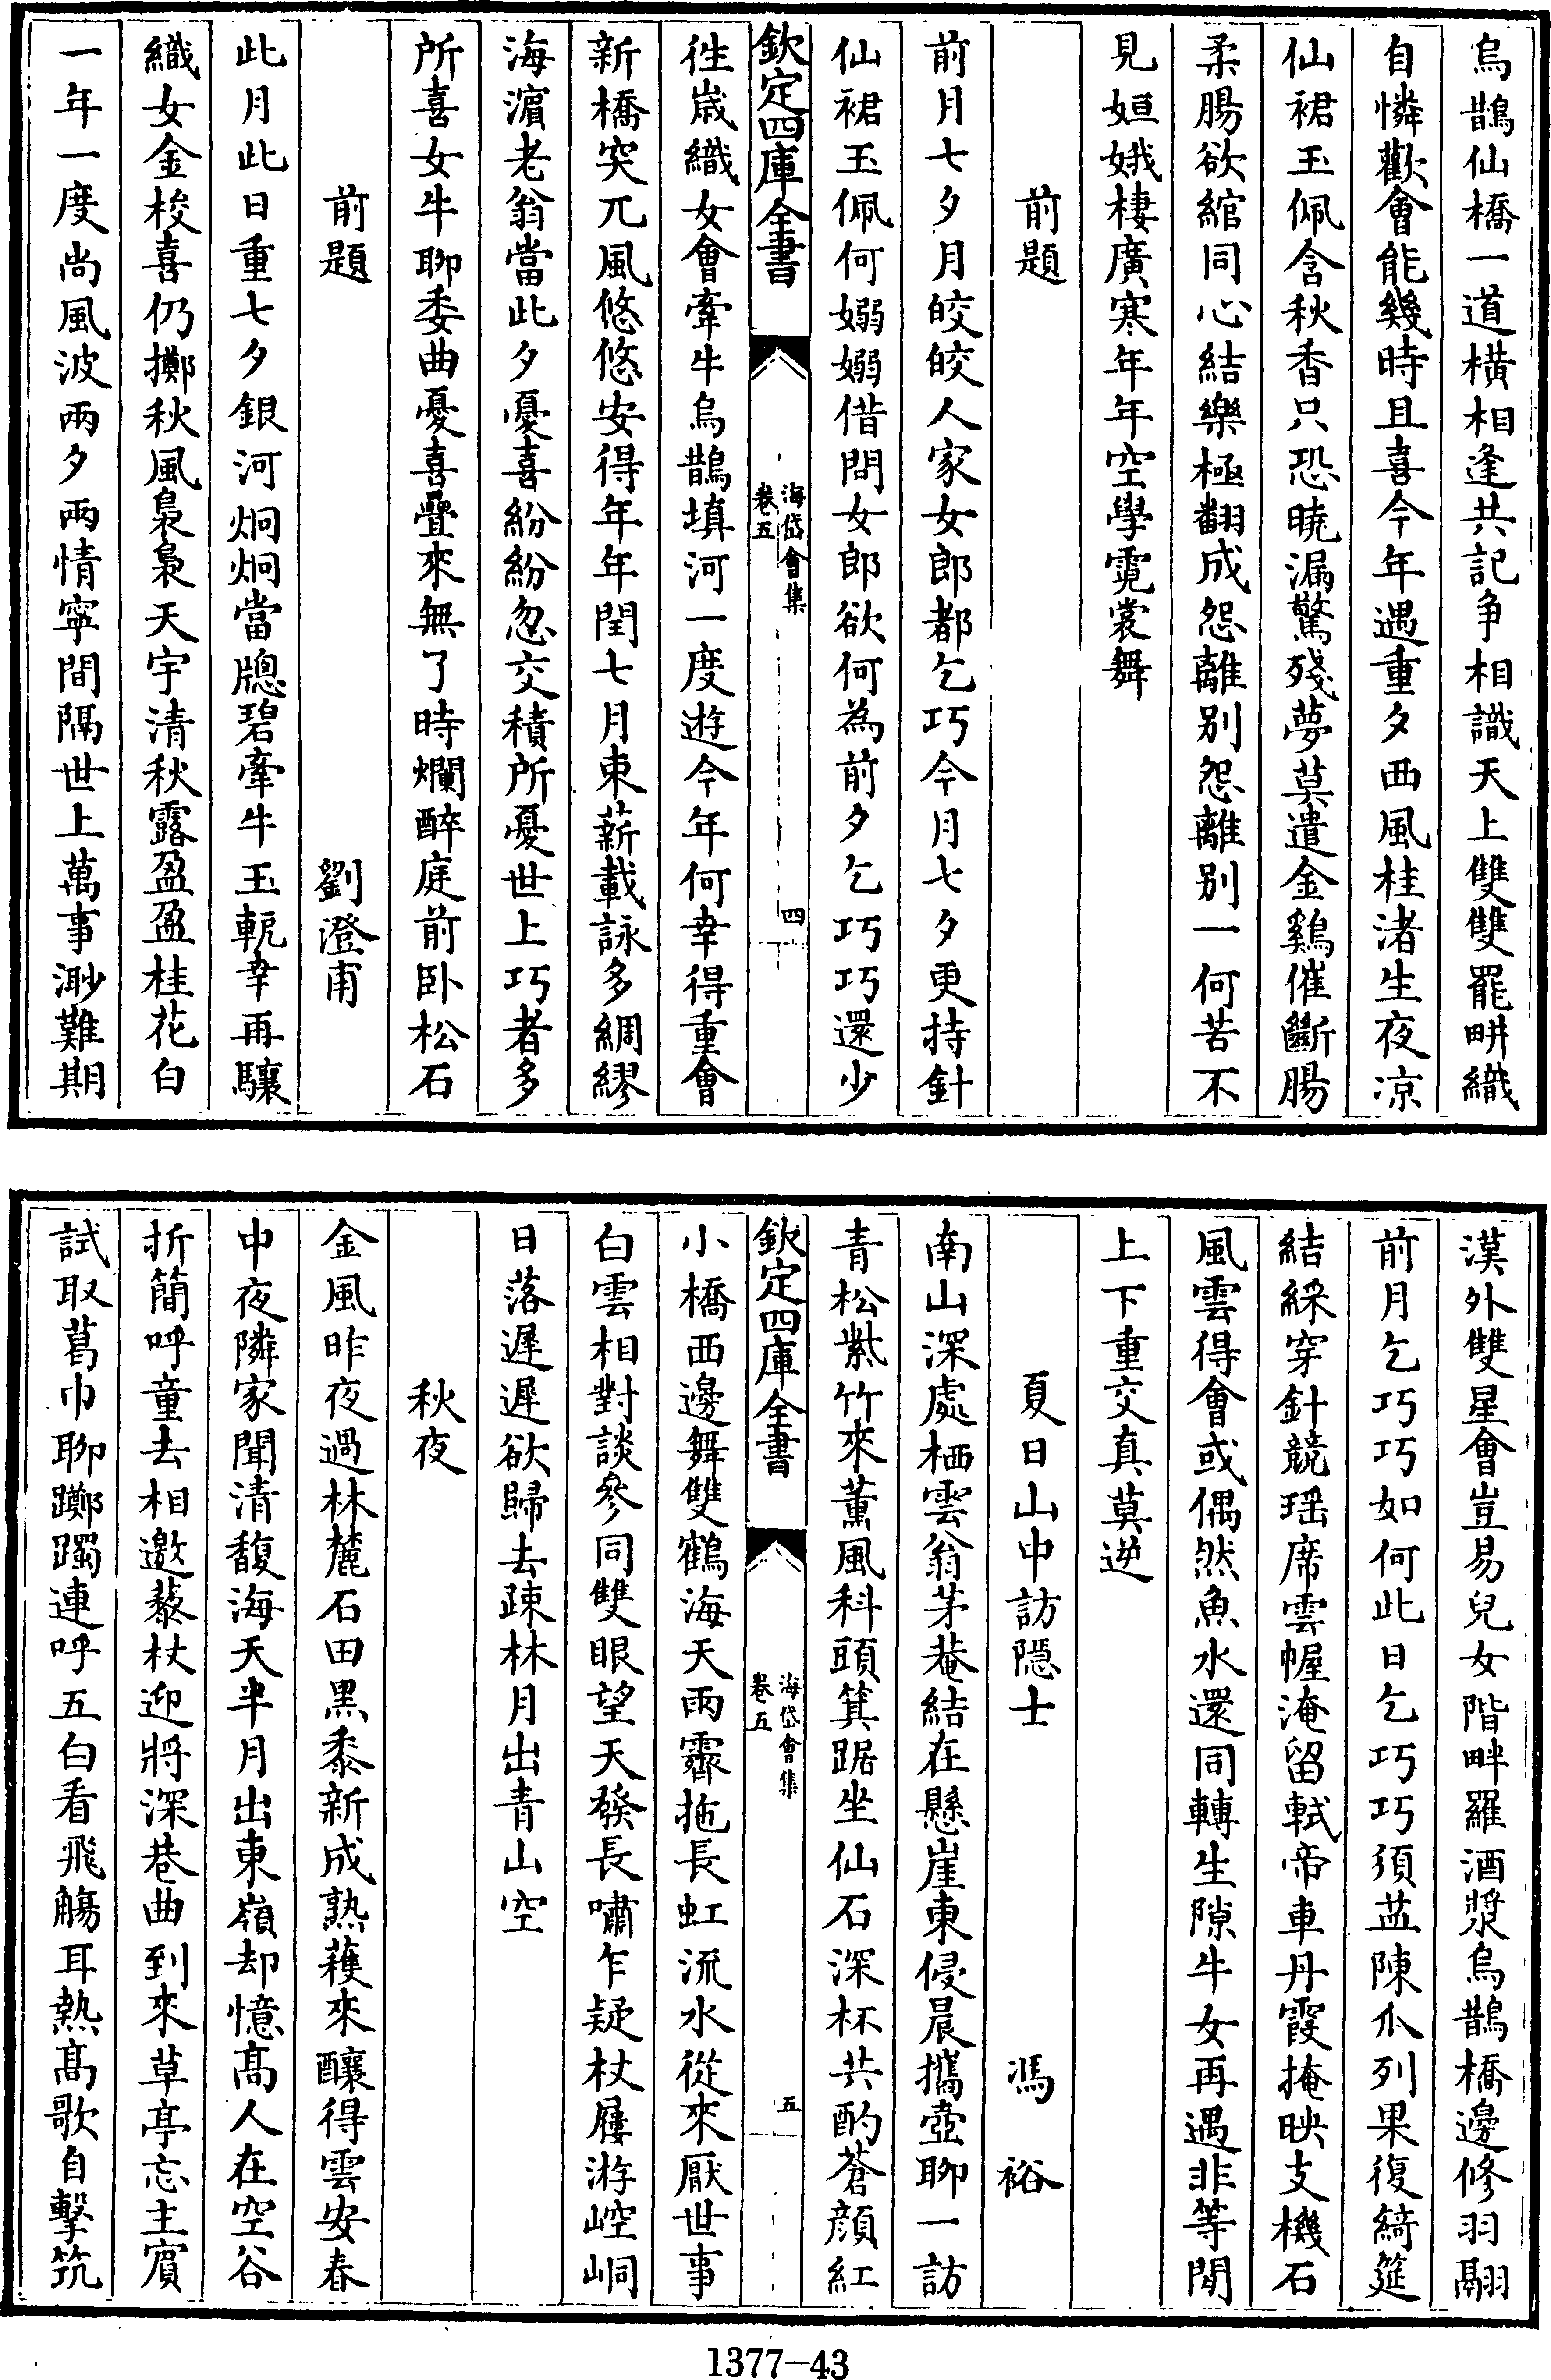 烏鵲仙橋一道橫相逢共記争相識天上雙雙罷畊織
自憐歡會能幾時且喜今年遇重夕西風桂渚生夜凉
仙裙玉佩含秋香只恐曉漏驚殘夢莫遣金鷄催斷腸
柔腸欲綰同心結樂極翻成怨離别怨離别一何苦不
見姮娥棲廣寒年年空學霓裳舞
前題
前月七夕月皎皎人家女郎都乞巧今月七夕更持針
仙裙玉佩何嫋嫋借問女郎欲何為前夕乞巧巧還少
欽定四庫全書
海岱會集
卷五
四
徃嵗織女會牽牛烏鵲填河一度遊今年何幸得重會
新橋突兀風悠悠安得年年閏七月束薪載詠多綢繆
海濵老翁當此夕憂喜紛紛忽交積所憂世上巧者多
所喜女牛聊委曲憂喜疊來無了時爛醉庭前卧松石
前題
劉澄甫
此月此日重七夕銀河炯炯當牕碧牽牛玉軛幸再驤
織女金梭喜仍擲秋風裊裊天宇清秋露盈盈桂花白
一年一度尚風波兩夕兩情寜間隔世上萬事渺難期
漢外雙星會豈易兒女階畔羅酒漿烏鵲橋邊修羽翮
前月乞巧巧如何此日乞巧巧須益陳瓜列果復綺筵
結綵穿針競瑶席雲幄淹留軾帝車丹霞掩映支機石
風雲得會或偶然魚水還同轉生隙牛女再遇非等閒
上下重交真莫逆
夏日山中訪隱士
馮裕
南山深處栖雲翁茅菴結在懸崖東侵晨攜壺聊一訪
青松紫竹來薰風科頭箕踞坐仙石深杯共酌蒼顔紅
欽定四庫全書
海岱會集
卷五
五
小橋西邊舞雙鶴海天雨霽拖長虹流水從來厭世事
白雲相對談參同雙眼望天發長嘯乍疑杖屨游崆峒
日落遲遲欲歸去疎林月出青山空
秋夜
金風昨夜過林麓石田黑黍新成熟蓷來釀得雲安春
中夜隣家聞清馥海天半月出東嶺却憶髙人在空谷
折簡呼童去相邀藜杖迎將深巷曲到來草亭忘主賓
試取葛巾聊躑躅連呼五白看飛觴耳熱髙歌自擊筑
1377-43